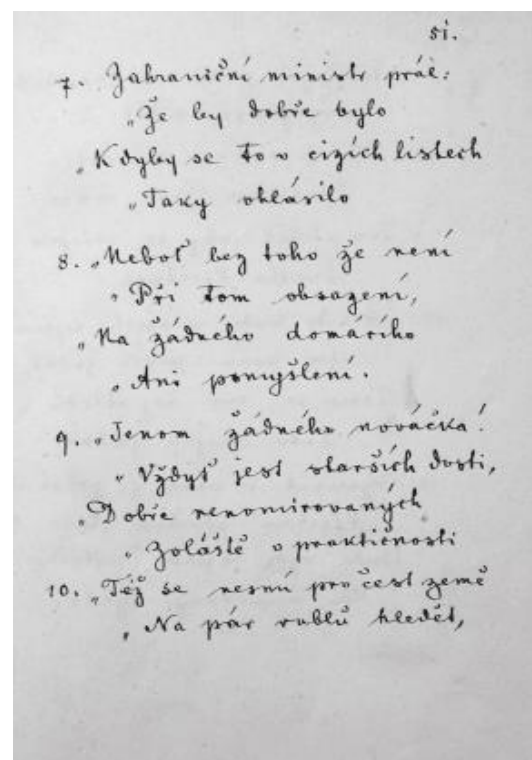 51.
7. Zahraniční ministr prál:
„Že by dobře bylo
„Kdyby se to v cizích listech
„Taky ohlásilo
8. „Neboť bez toho že není
„Při tom obsazení,
„Na žádného domácího
„Ani pomyšlení.
9. „Jenom žádného nováčka!
„Vždyť jest starších dosti,
„Dobře renomirovaných
„Zvláště v praktičnosti
10. „Též se nesmí pro čest země
„Na pár rublů hledět,